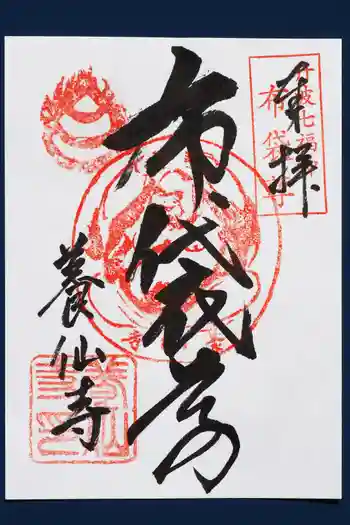 丹波七福
布袋
奉拝
布袋尊
養仙寺